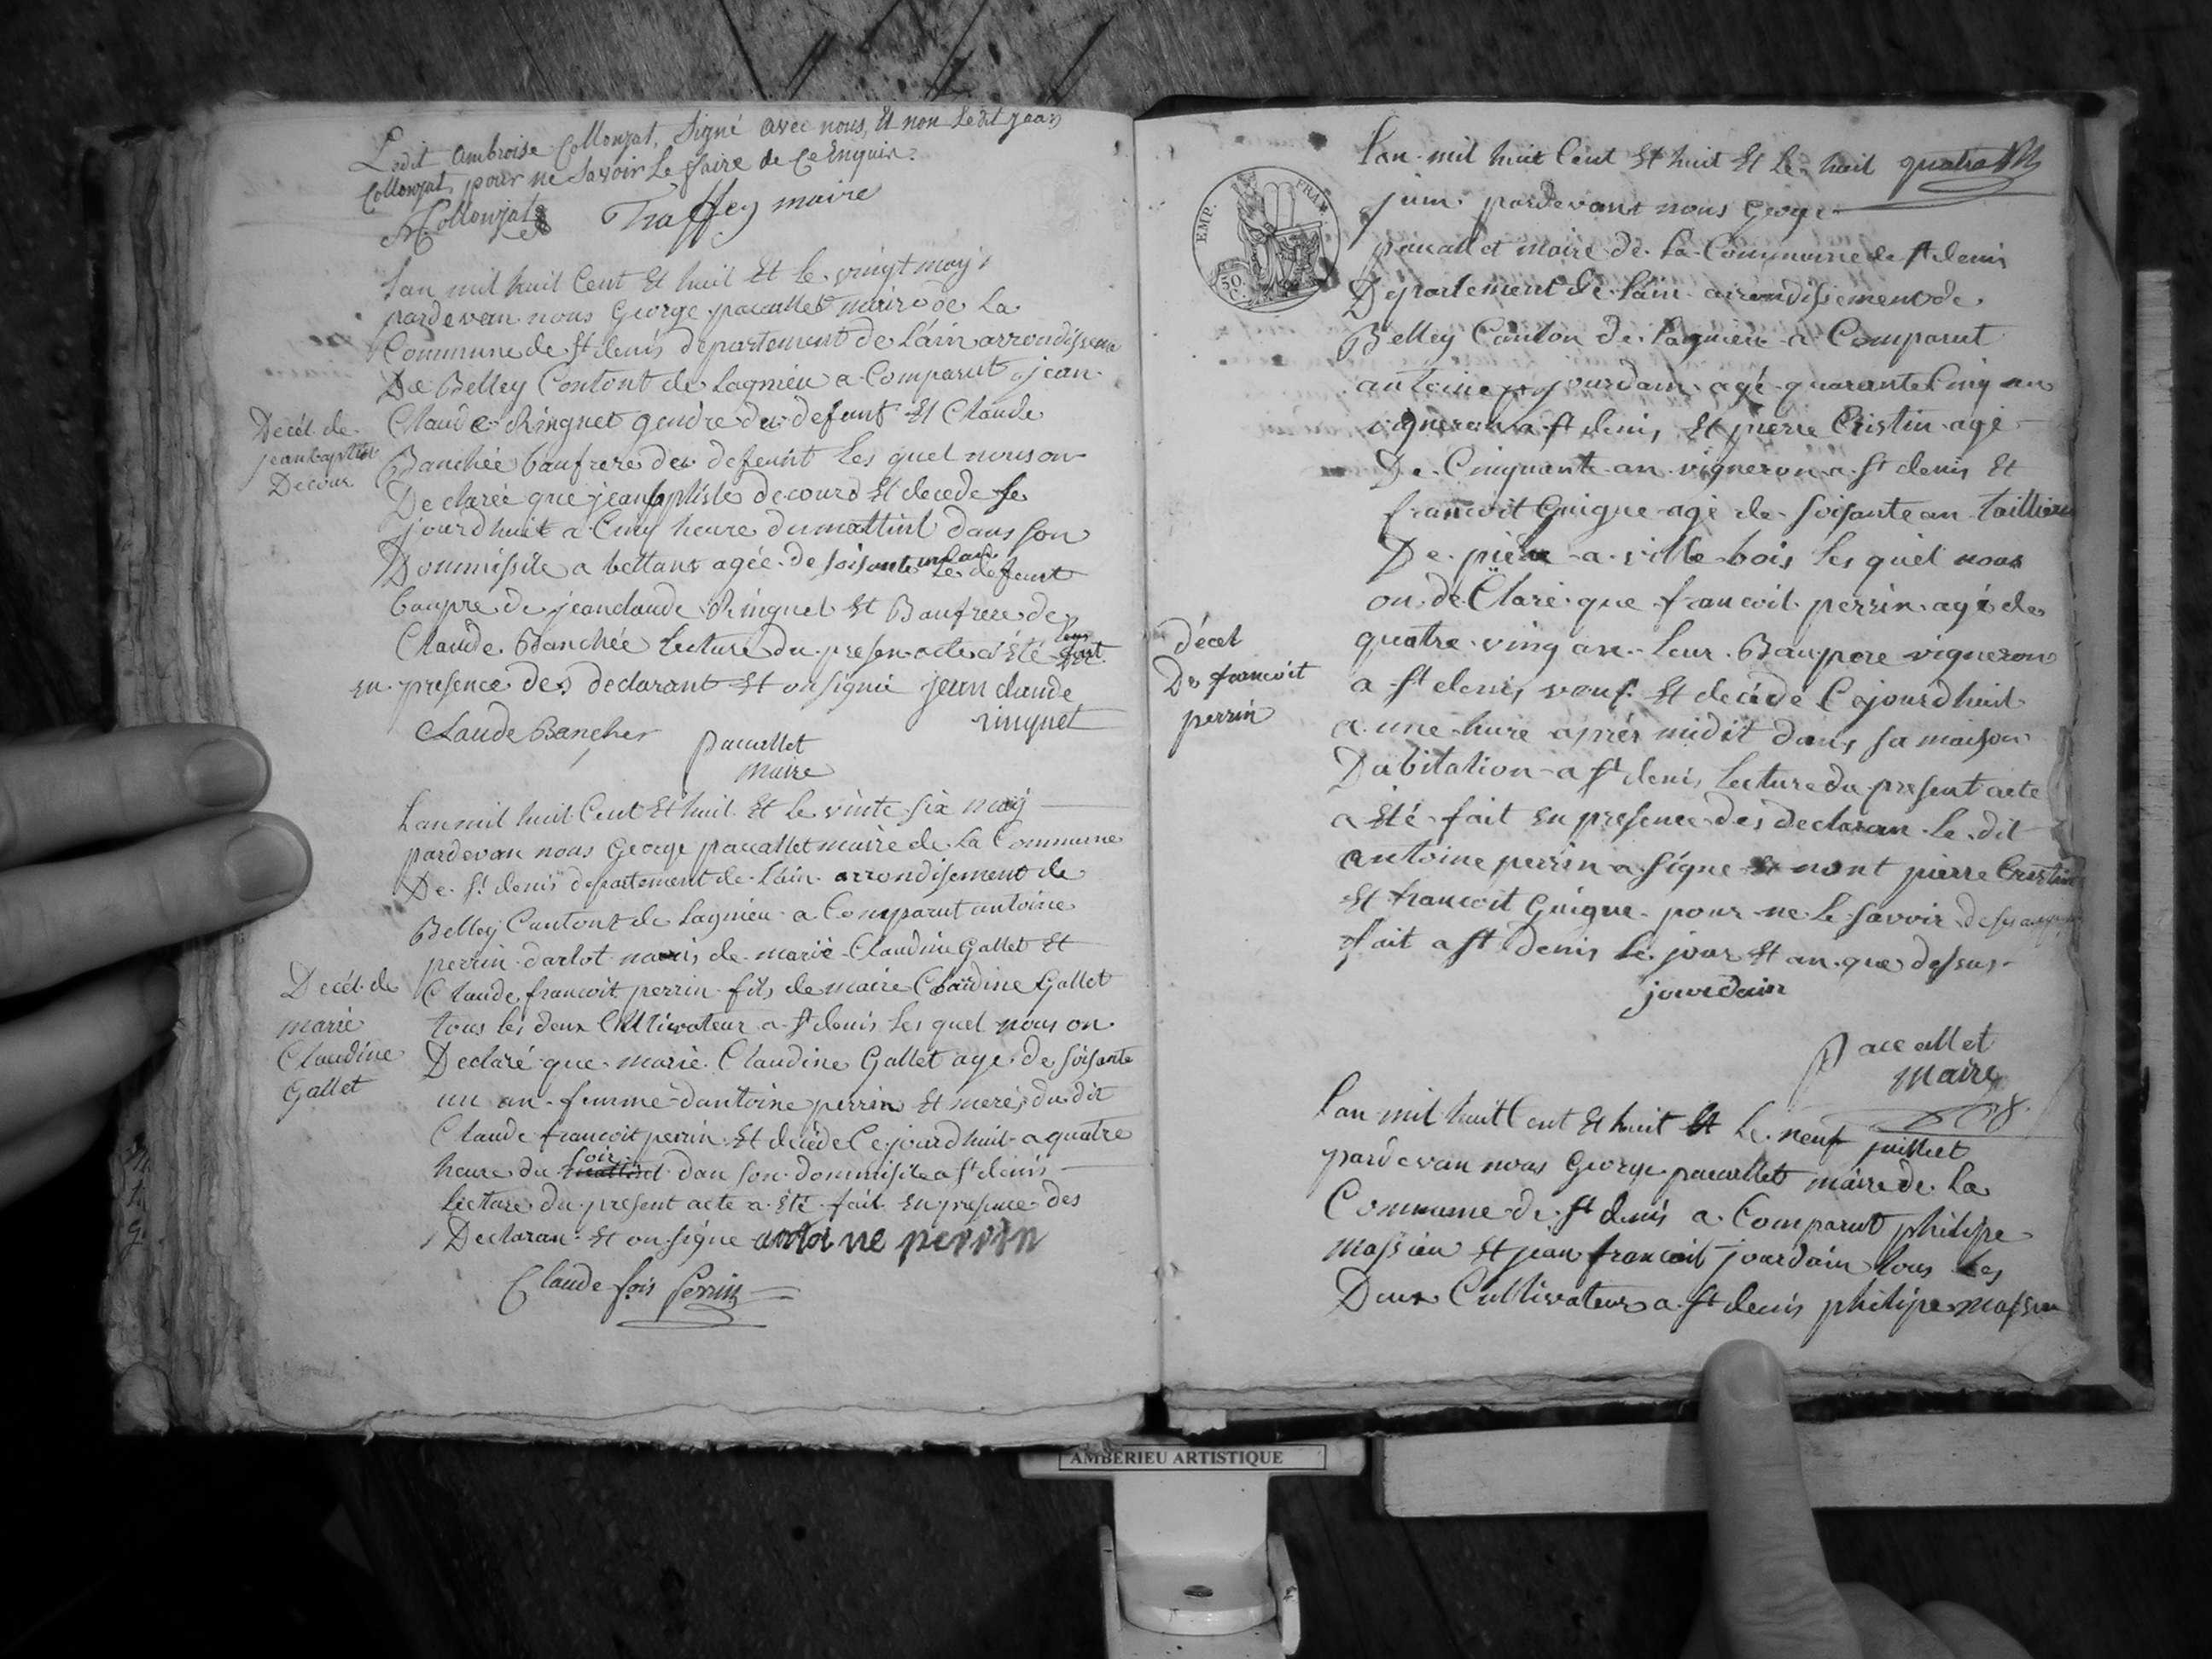 Ledit Ambroise Collonjat, signé avec nous, et non ledit jean
Collonjat, pour ne savoir le faire de ce enquis.
A Collonjat Traffey maire
Lan mil huit Cent et huit et le vingt may
pardevan nous George paucallet maire de La
Commune de St denis département de Láin arrondissem
De Belley Contont de Lagnieu a Comparut jean
Claude Ringuet gendre du defunt et Claude
Banchée baufrere du defunt Les quel nous on
Declarée que jean baptiste decourd et decede se
jourdhuit a Cinq heure du mattint dans son
Dommissile a bettant agée de soisante un an Le defunt
baupre de jean claude Ringuet et Baufrere de
Claude Banchée Lecture du presen acte a été fait
en presence des declarant et on signié jean claude
ringuet
Claude Bancher
paucallet
maire
Decét de
jean baptiste
Decour
Lan mil huit Cent et huit et le vinte six may
pardevan nous George paucallet maire de La Commune
De St denis departement de Láin arrondisement de
Belley Cantont de Lagnieu a Comparut antoine
perrin darlot maris de marie Claudine Gallet et
Claude francoit perrin fils de marie Claudine Gallet
tous les deux Cultivateur a St denis Les quel nous on
Declaré que marie Claudine Gallet age de soisante
un an femme dantoine perrin et mere du dit
Claude francoit perrin et décéde Ce jourdhuit a quatre
heure du soir dan son dommisile a St denis
Lecture du present acte a été fait en presence des
Declaran et on signe antoine perrin
Claude fois Perrin
Decét de
marie
Claudine
Gallet
EMP. FRAN.
50 C.
Lan mil huit Cent et huit et Le huit quatre
juin pardevant nous George
paucallet maire de La Commune de St denis
Departement de Láin arrondissement de
Belley Canton de Lagnieu a Comparut
antoine jourdain agé quarante Cinq an
vigneron a St denis et pierre Cristin agé
De Cinquante an vigneron a St denis et
francoit Guigue agé de soisante an taillieur
De pierre a ville bois Les quél nous
on dé Claré que francoit perrin agé de
quatre ving an Leur Baupere vigneron
a St denis veuf et decéde Ce jourdhuit
a une hure aprés midit dans sa maison
Dabitation a St denis Lecture du present acte
a été fait en presence des declaran Le dit
antoine perrin a signe et nont pierre Cristin
et francoit Guigue pour ne le savoir de
fait a St Denis Le jour et an que dessus
jourdain
Paucallet
Maire
décet
De francoit
perrin
Lan mil huit Cent et huit et Le neuf juilliet
pardevan nous George paucallet maire de La
Commune de St denis a Comparut philipe
Massieu et jean francoit jourdain tous Les
Deux Cultivateur a St denis philipe Massieu
AMBERIEU ARTISTIQUE